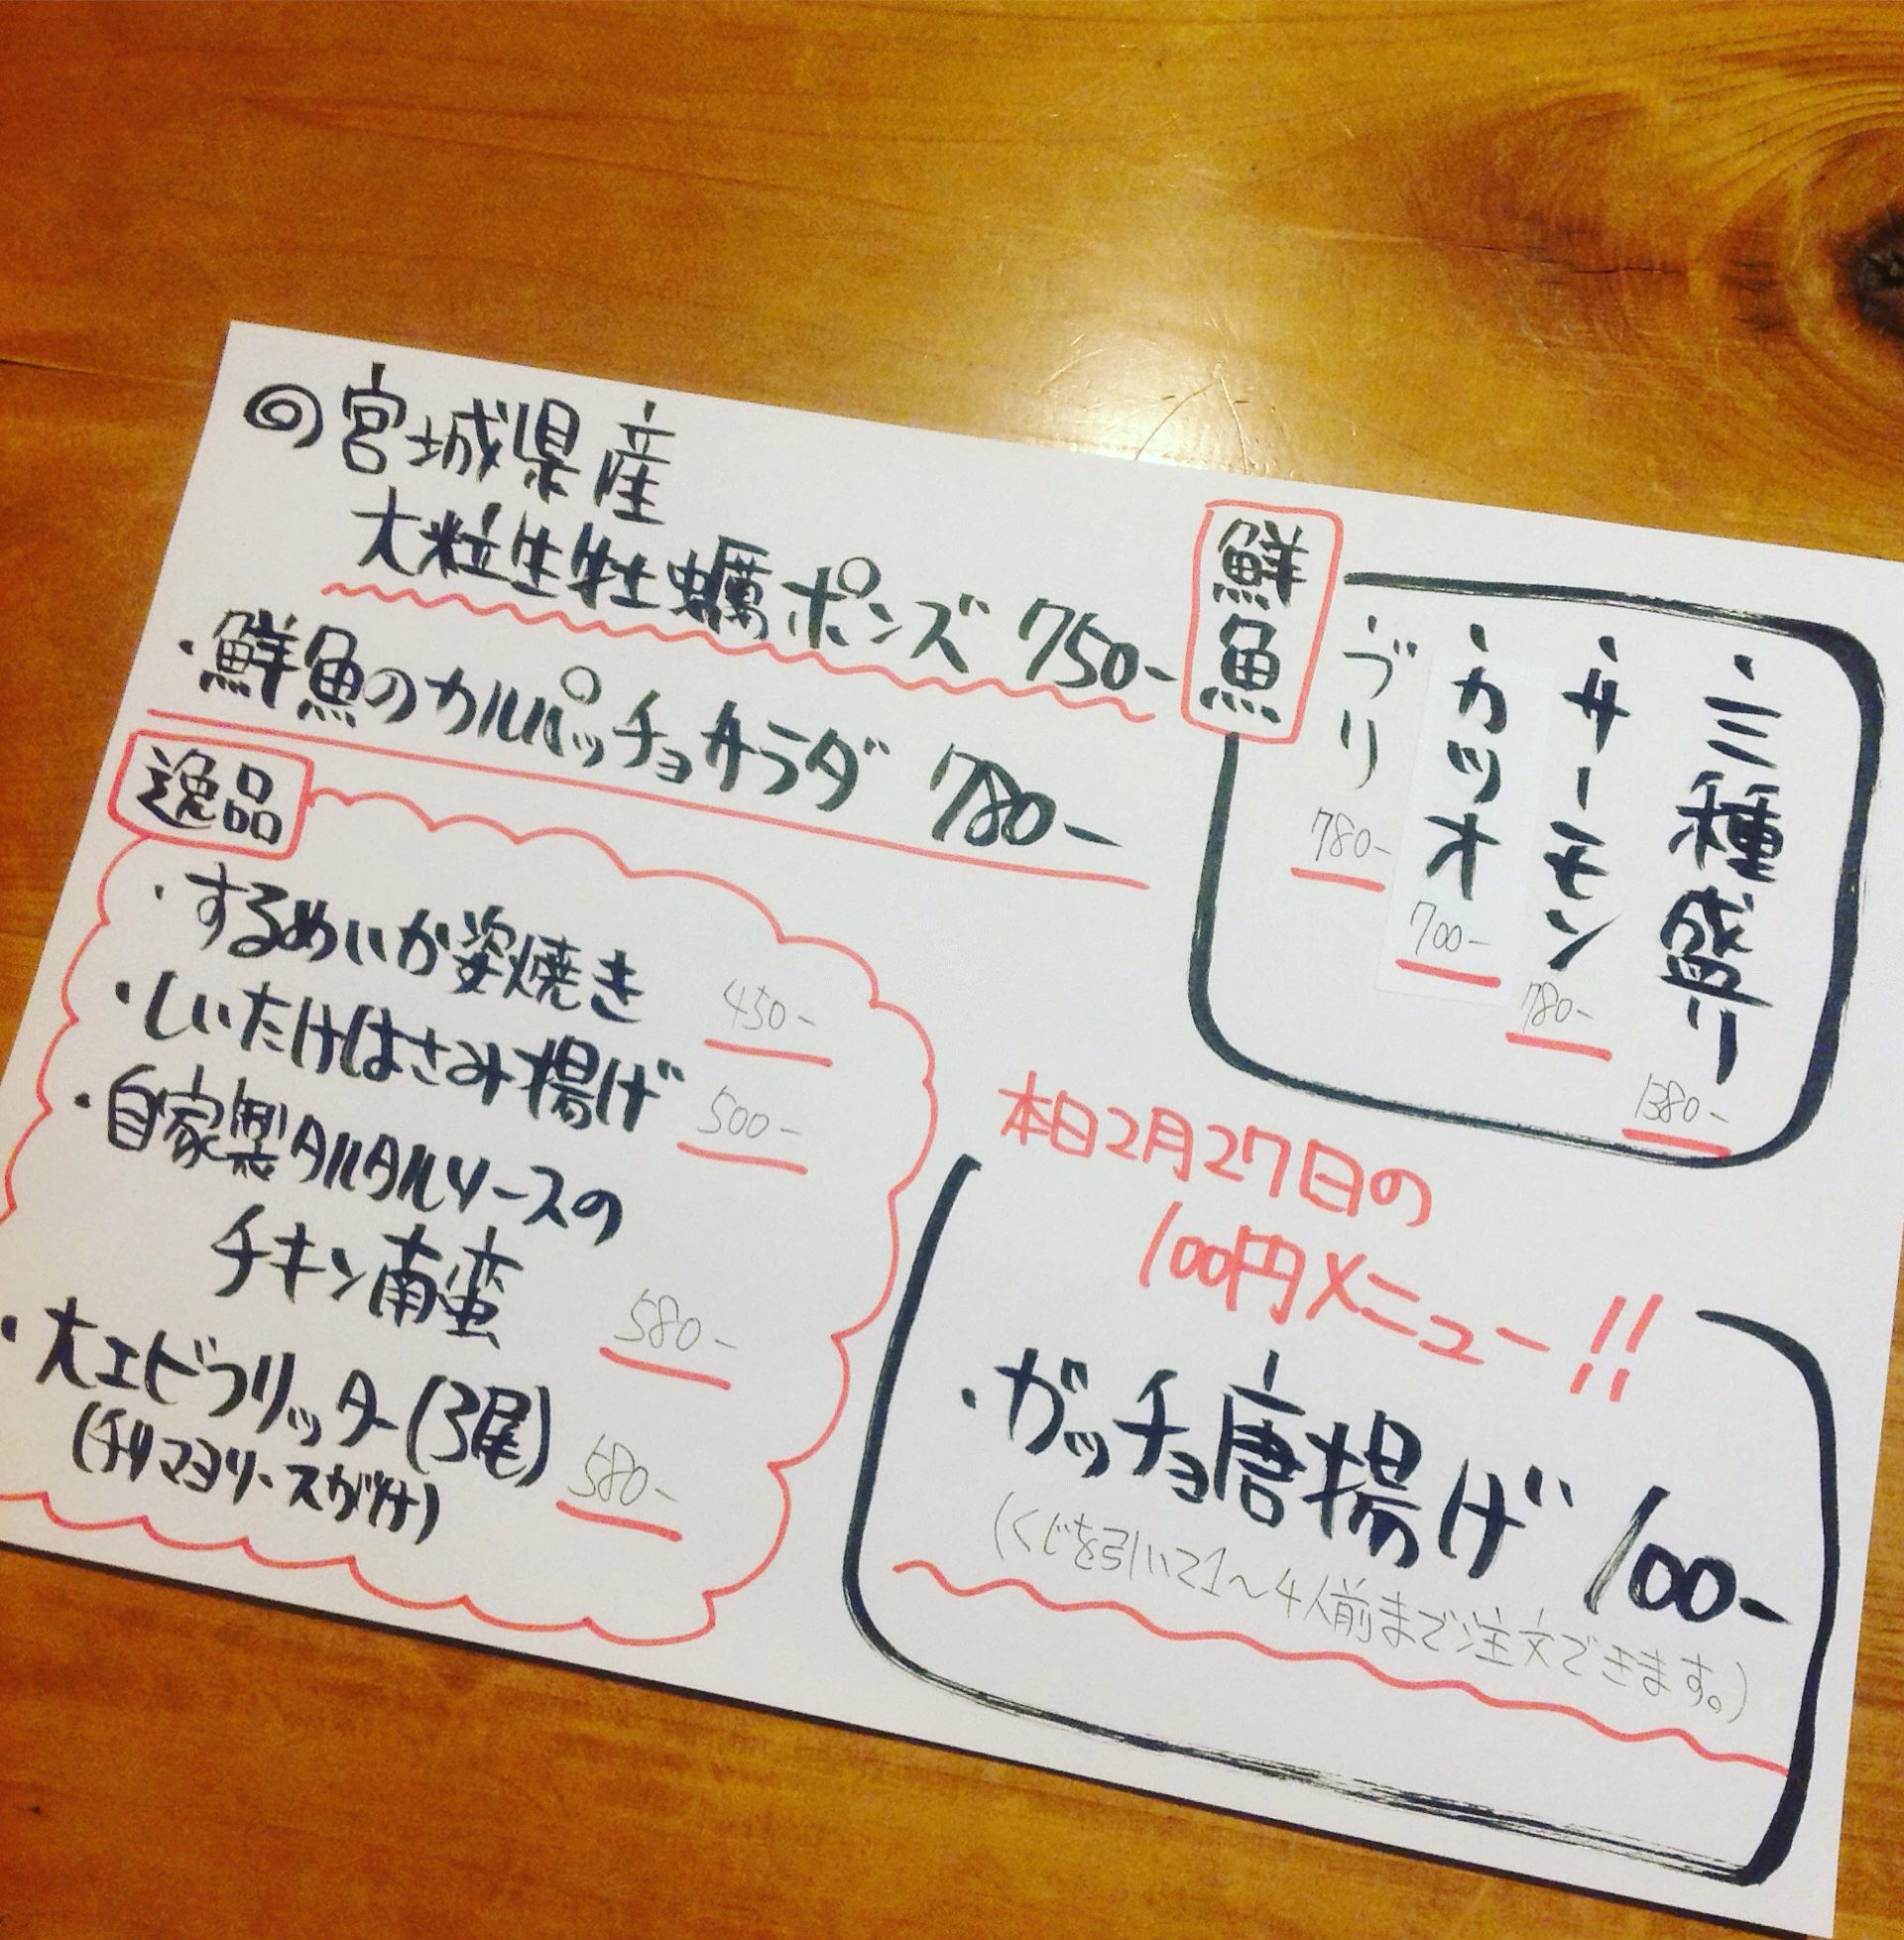 宮城県産
大粒生牡蠣ポンズ 750-
・鮮魚のカルパッチョサラダ 780-
鮮魚
・三種盛り 1380-
・サーモン 780-
・カツオ 700-
・ブリ 780-
逸品
・するめいか姿焼き 450-
・しいたけはさみ揚げ 500-
・自家製タルタルソースの
チキン南蛮 580-
・大エビフリッター(3尾) 580-
(チリマヨソースがけ)
本日2月27日の
100円メニュー!!
・ガッチョ唐揚げ 100-
(くじを引いて1～4人前まで注文できます。)